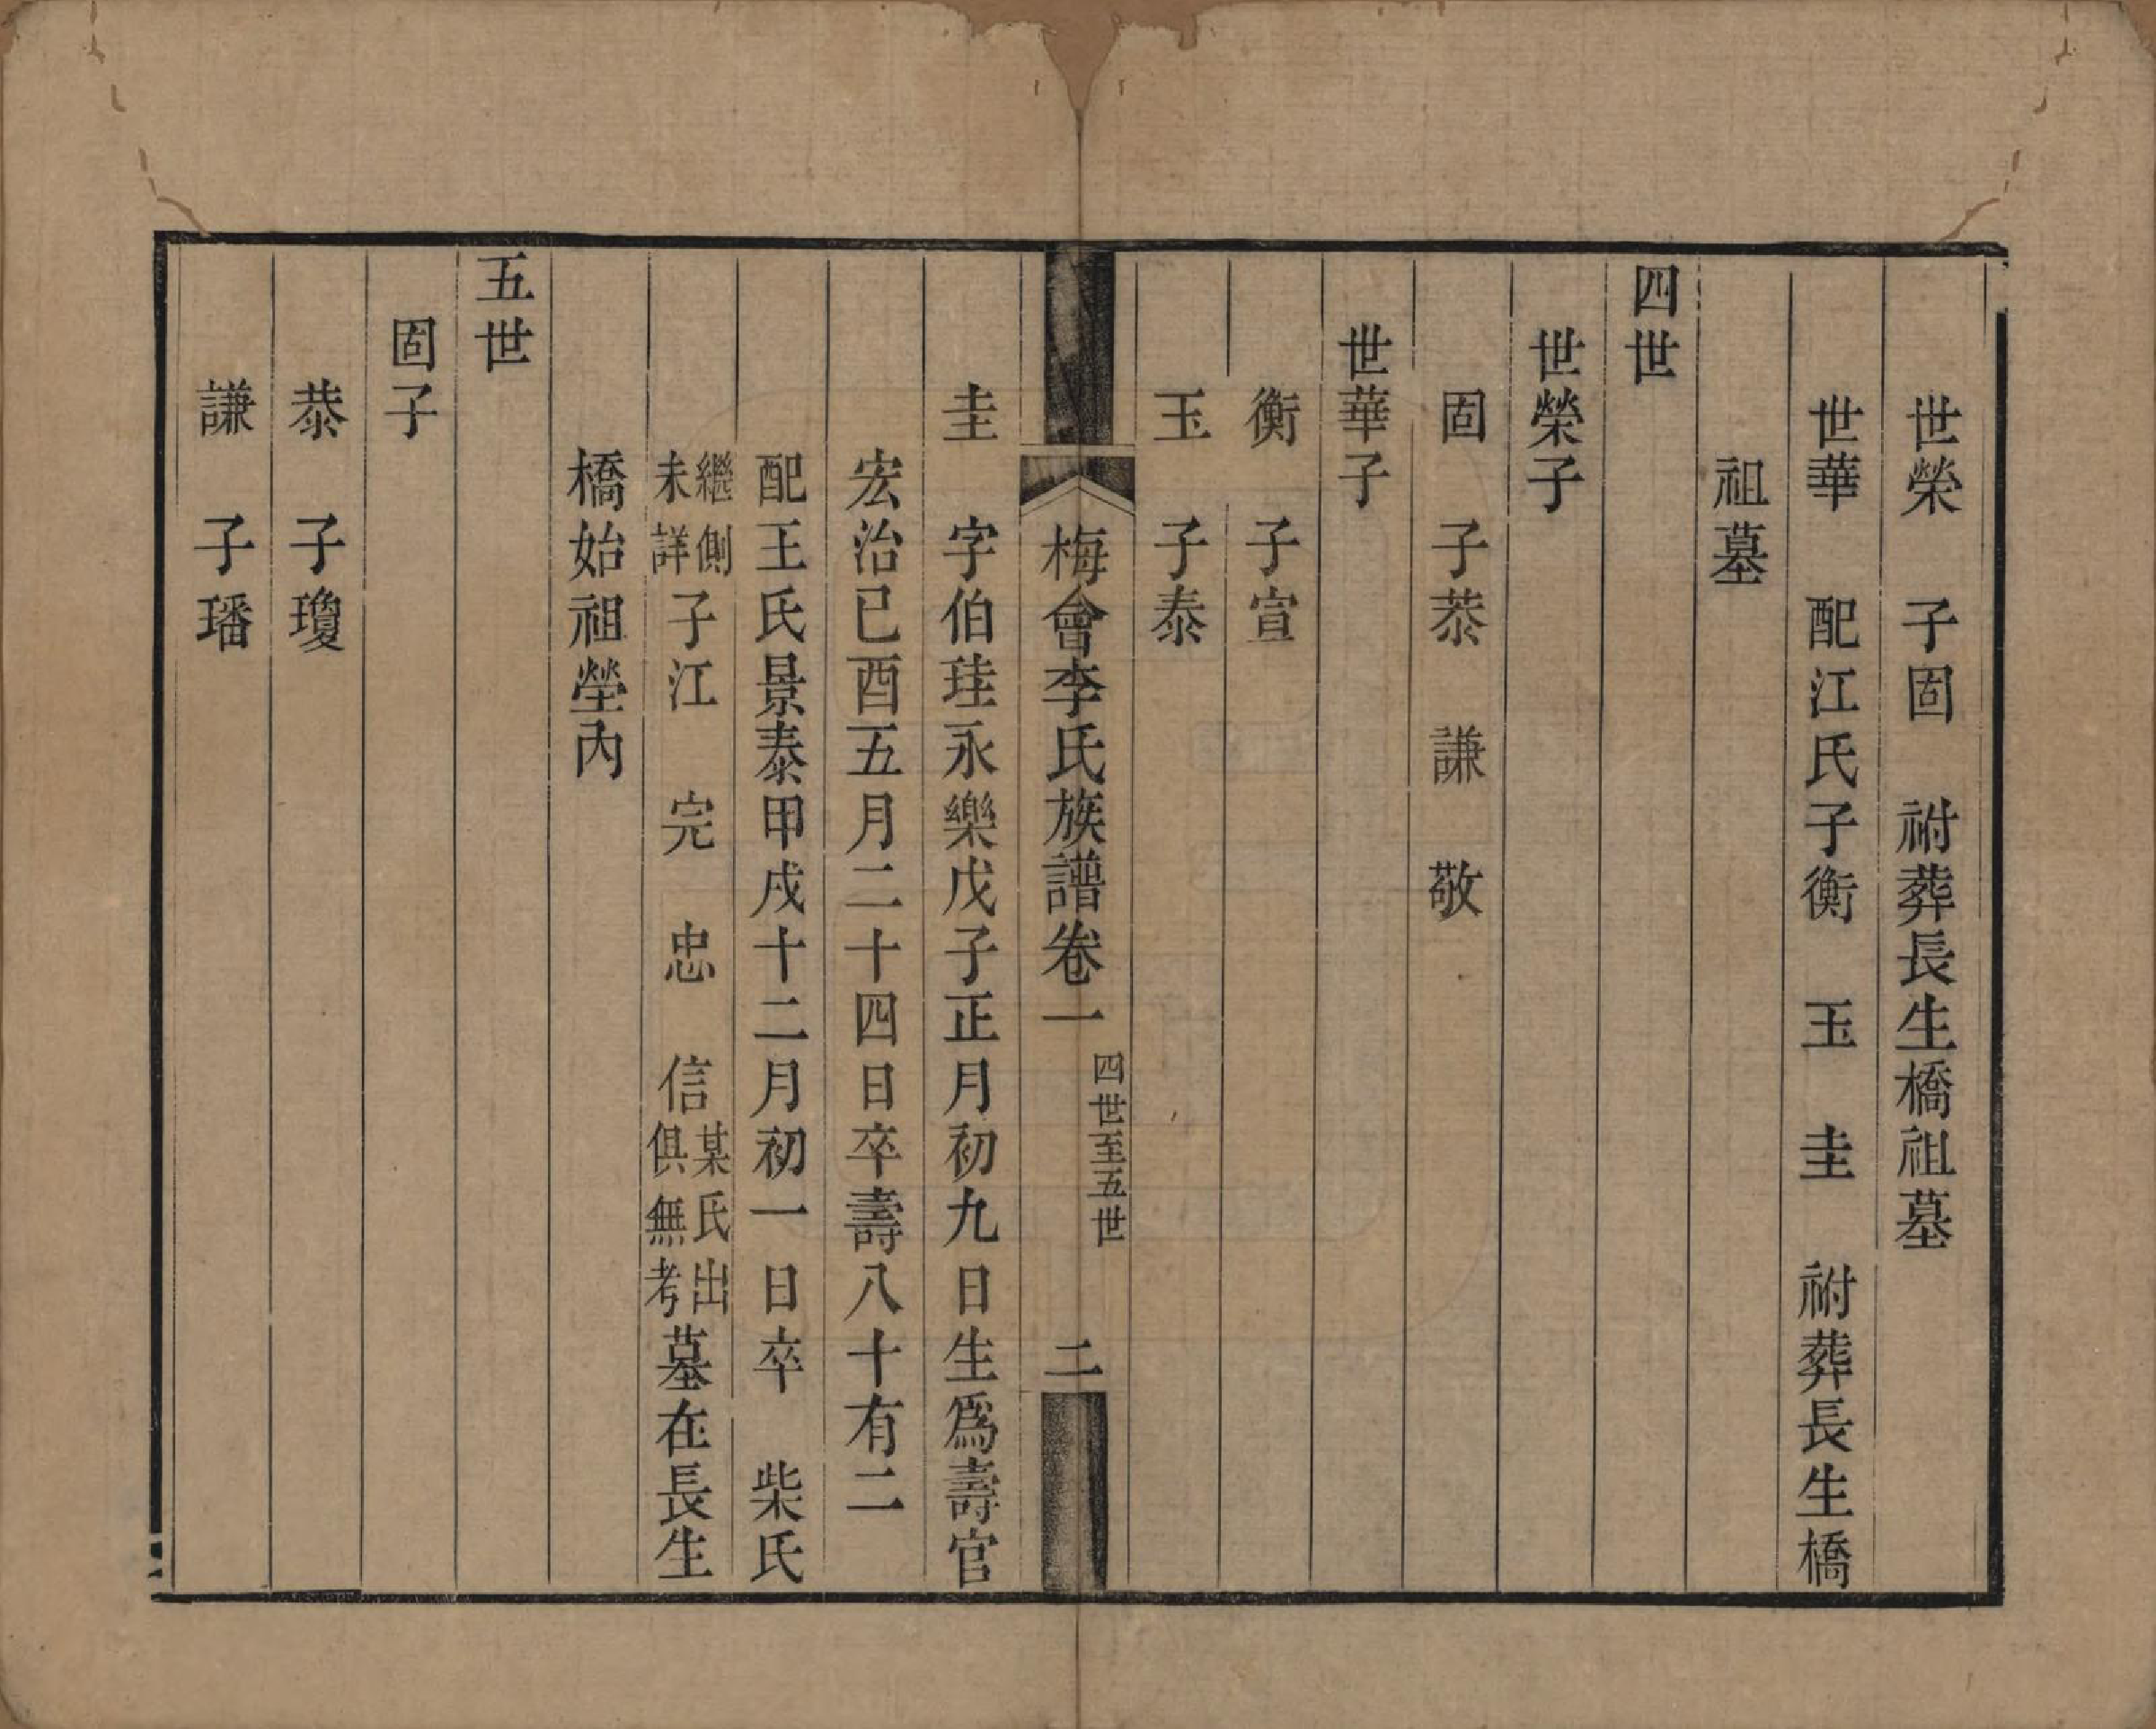 世榮　子固　祔葬長生橋祖墓
世華　配江氏子衡　玉　圭　祔葬長生橋
祖墓
四世
世榮子
固　子恭　謙　敬
世華子
衡　子宣
玉　子泰
梅會李氏族譜卷一　四世至五世　二
圭　字伯珪永樂戊子正月初九日生爲壽官
宏治己酉五月二十四日卒壽八十有二
配王氏景泰甲戌十二月初一日卒　柴氏
繼側未詳子江　完　忠　信某氏出俱無考墓在長生
橋始祖塋內
五世
固子
恭　子瓊
謙　子璠